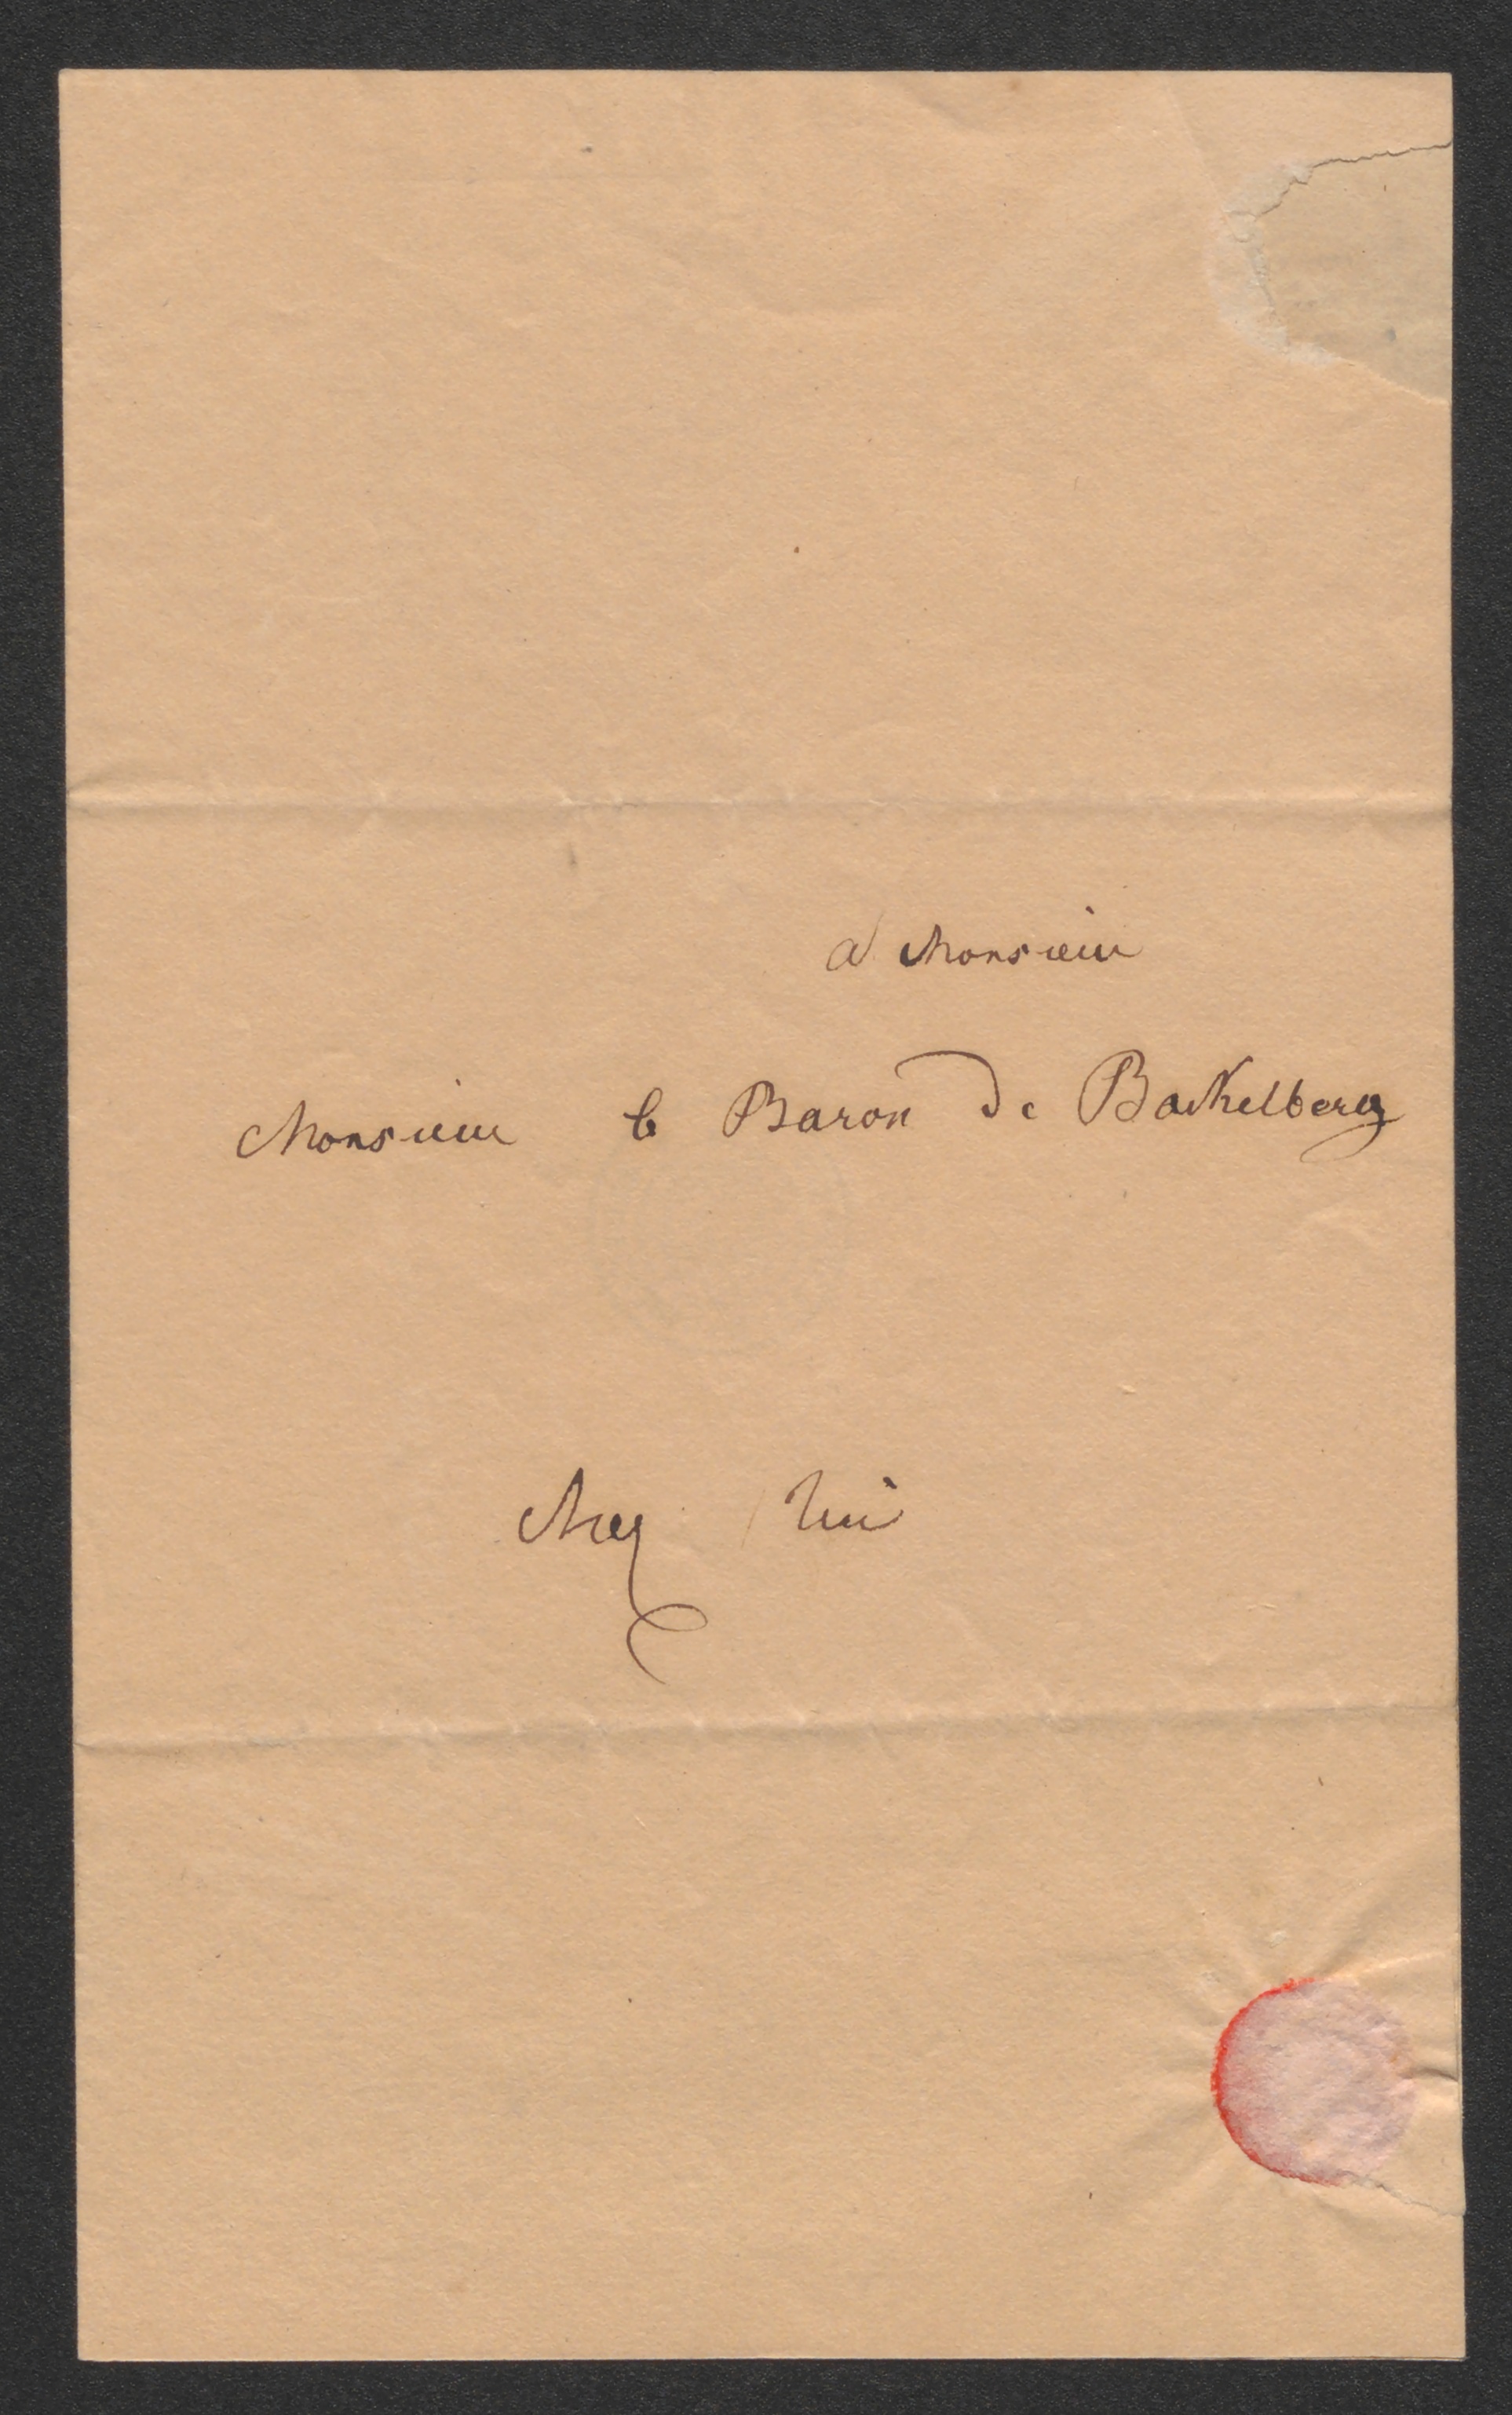 a Monsieur
Monsieur le Baron de Backelberg
chez lui